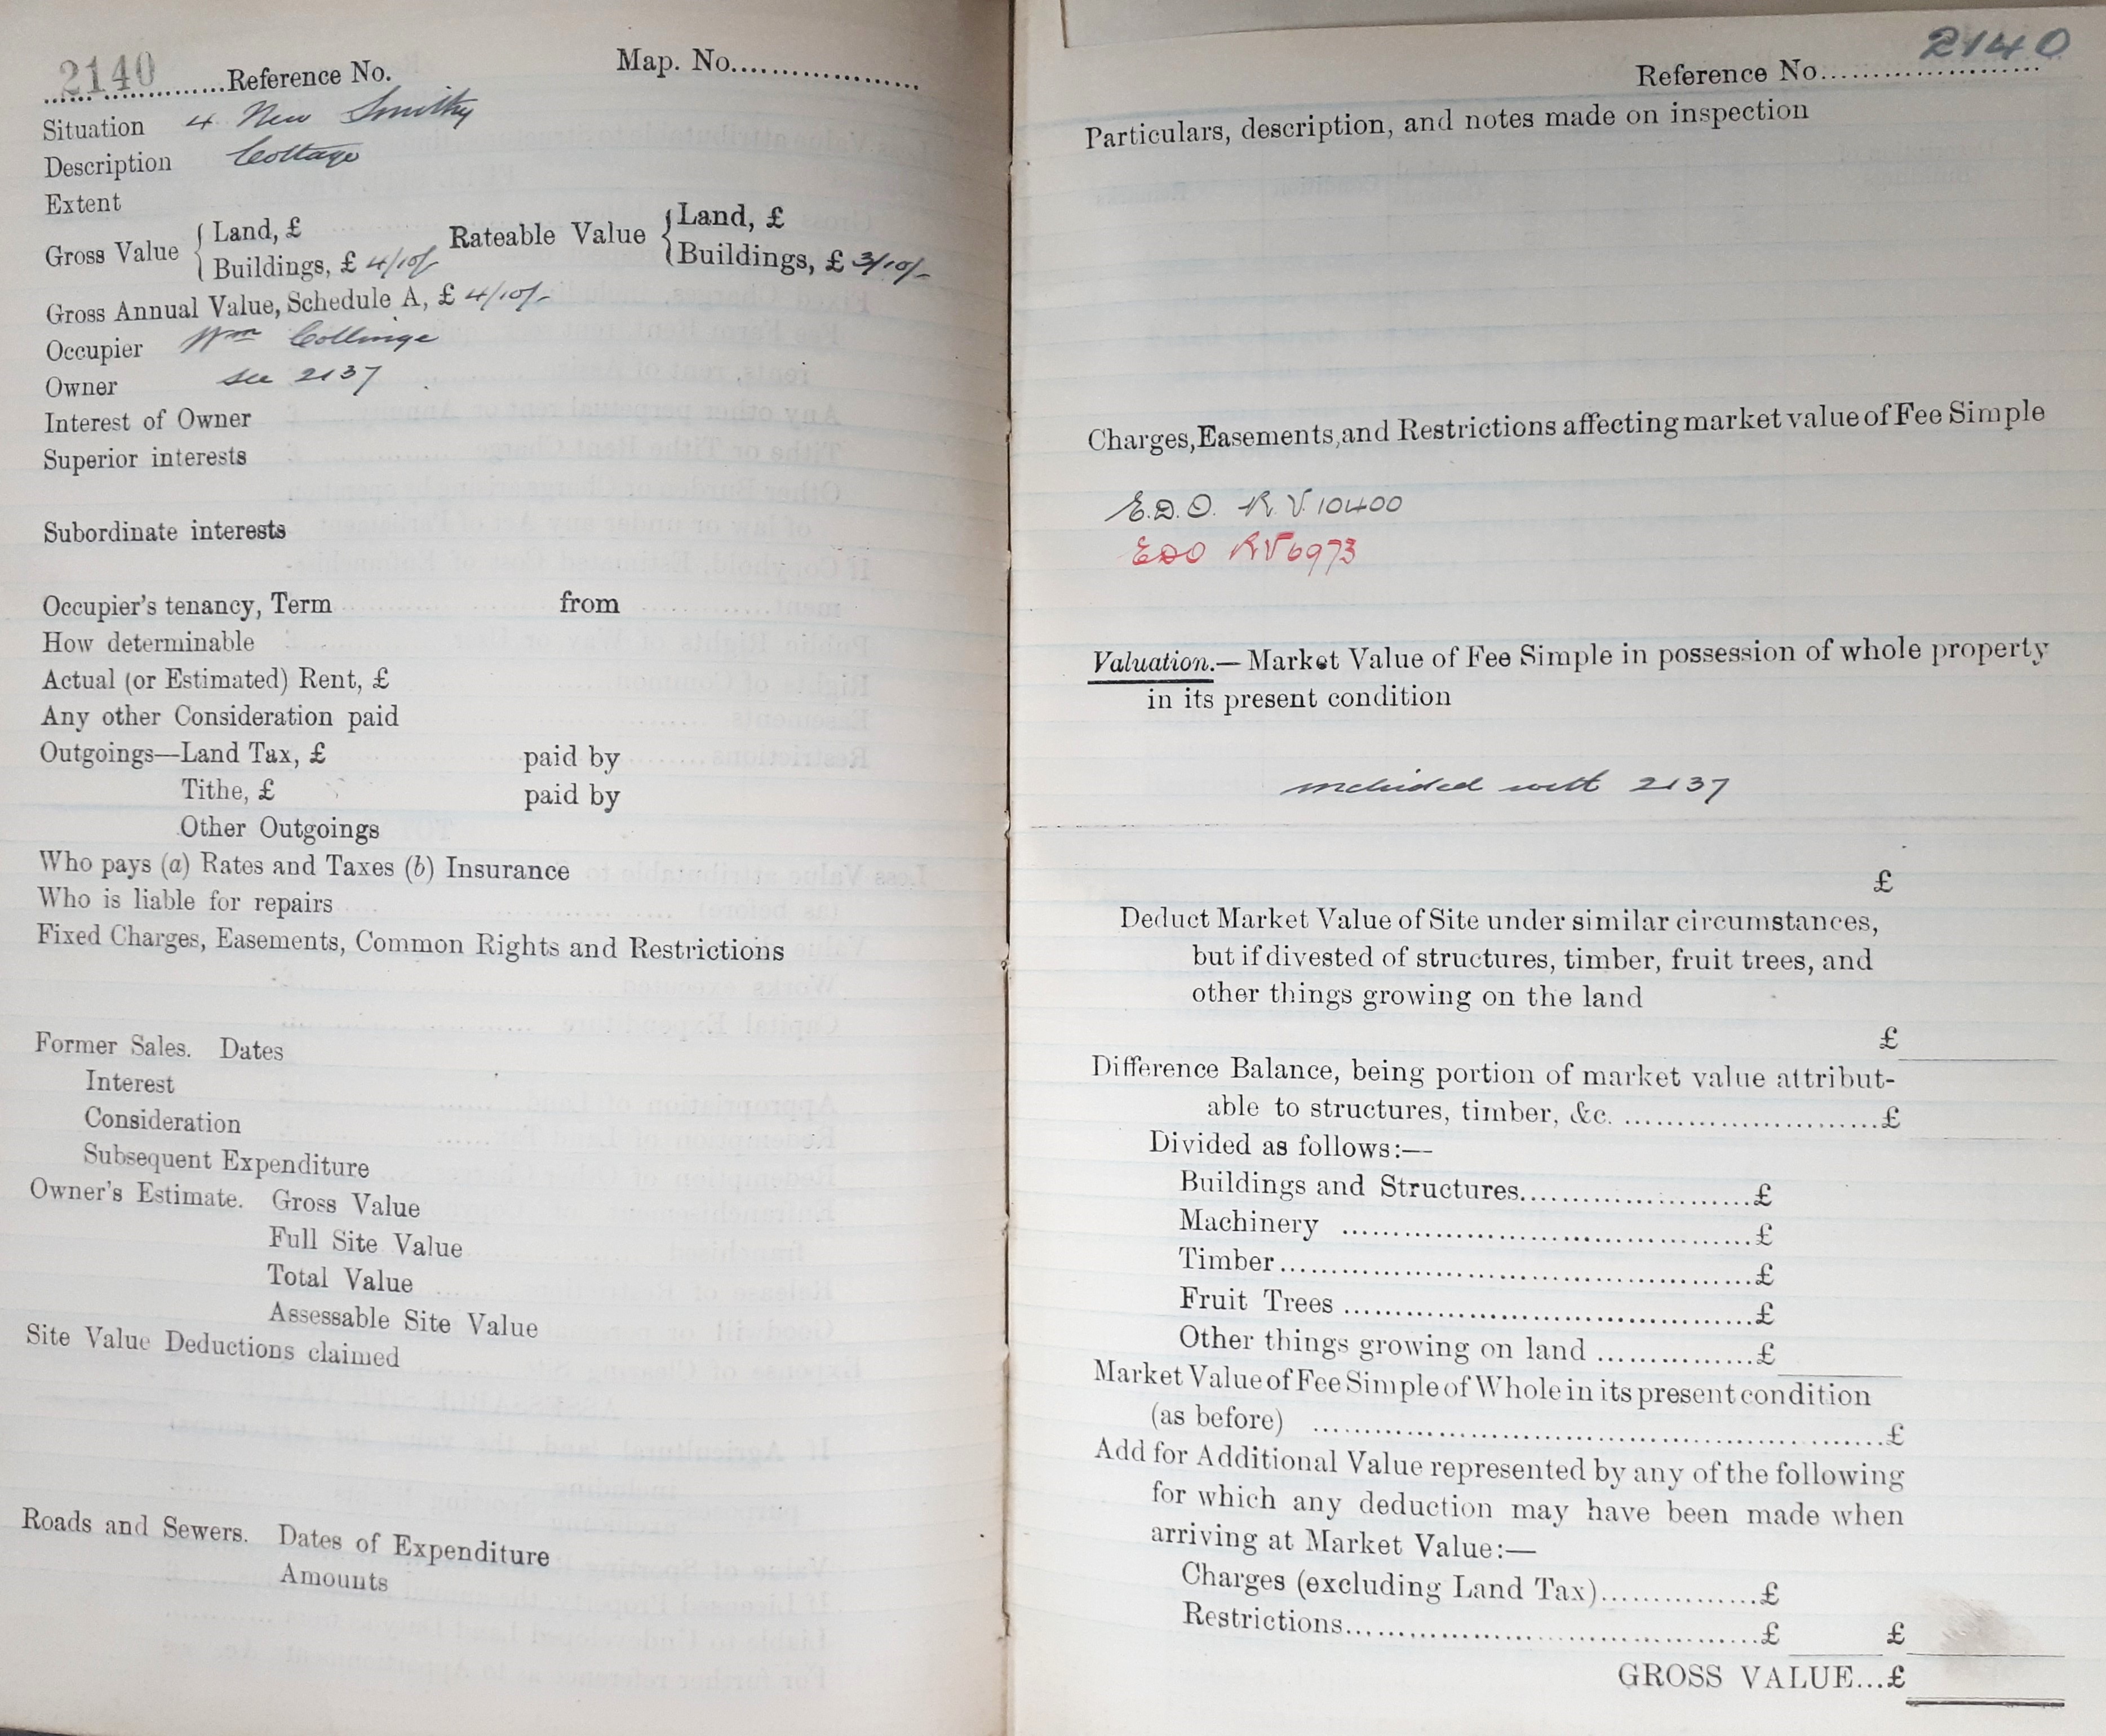 2140 Reference No. Map. No.
Situation 4 New Smithy
Description Cottage
Extent
Gross Value { Land, £ Rateable Value { Land, £
Buildings, £ 4/10/- Buildings, £ 3/10/-
Gross Annual Value, Schedule A, £ 4/10/-
Occupier Wm Collinge
Owner see 2137
Interest of Owner
Superior interests
Subordinate interests
Occupier's tenancy, Term from
How determinable
Actual (or Estimated) Rent, £
Any other Consideration paid
Outgoings—Land Tax, £ paid by
Tithe, £ paid by
Other Outgoings
Who pays (a) Rates and Taxes (b) Insurance
Who is liable for repairs
Fixed Charges, Easements, Common Rights and Restrictions
Former Sales. Dates
Interest
Consideration
Subsequent Expenditure
Owner's Estimate. Gross Value
Full Site Value
Total Value
Assessable Site Value
Site Value Deductions claimed
Roads and Sewers. Dates of Expenditure
Amounts
Reference No. 2140
Particulars, description, and notes made on inspection
Charges, Easements, and Restrictions affecting market value of Fee Simple
E.D.O. R.V. 10400
EDO RV 6973
Valuation.—Market Value of Fee Simple in possession of whole property
in its present condition
included with 2137
£
Deduct Market Value of Site under similar circumstances,
but if divested of structures, timber, fruit trees, and
other things growing on the land
£
Difference Balance, being portion of market value attribut-
able to structures, timber, &c. £
Divided as follows:—
Buildings and Structures £
Machinery £
Timber £
Fruit Trees £
Other things growing on land £
Market Value of Fee Simple of Whole in its present condition
(as before) £
Add for Additional Value represented by any of the following
for which any deduction may have been made when
arriving at Market Value:—
Charges (excluding Land Tax) £
Restrictions £ £
GROSS VALUE...£